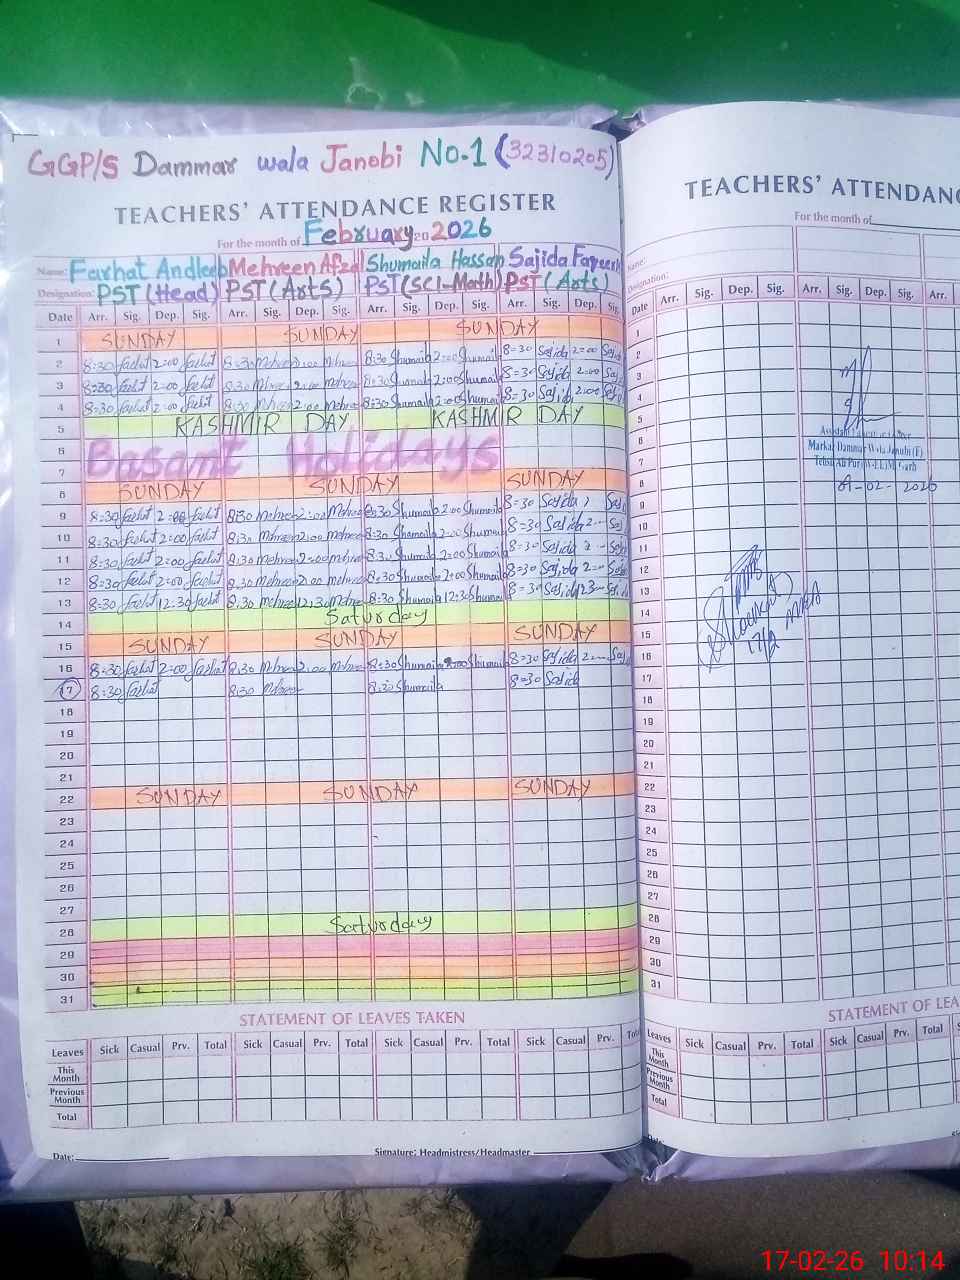 GGP/S Dammar wala Janobi No.1 (32310205)
TEACHERS' ATTENDANCE REGISTER
For the month of February 20 2026
Name: Farhat Andleeb Mehreen Afzal Shumaila Hassan Sajida
Designation: PST (Head) PST (Arts) PST (SCI-Math) PST (Arts)
Date Arr. Sig. Dep. Sig. Arr. Sig. Dep. Sig. Arr. Sig. Dep. Sig. Arr. Sig. Dep. Sig.
1 SUNDAY SUNDAY SUNDAY
2 8:30 Farhat 2:00 Farhat 8:30 Mehreen 2:00 Mehreen 8:30 Shumaila 2:00 Shumaila 8=30 Sajida 2=00 Sajida
3 8:30 Farhat 2:00 Farhat 8:30 Mehreen 2:00 Mehreen 8:30 Shumaila 2:00 Shumaila 8=30 Sajida 2=00 Sajida
4 8:30 Farhat 2:00 Farhat 8:30 Mehreen 2:00 Mehreen 8:30 Shumaila 2:00 Shumaila 8=30 Sajida 2=00 Sajida
5 KASHMIR DAY KASHMIR DAY
6
Basant Holidays
7
8 SUNDAY SUNDAY SUNDAY
9 8:30 Farhat 2:00 Farhat 8:30 Mehreen 2:00 Mehreen 8:30 Shumaila 2:00 Shumaila 8=30 Sajida 2 Sajida
10 8:30 Farhat 2:00 Farhat 8:30 Mehreen 2:00 Mehreen 8:30 Shumaila 2:00 Shumaila 8=30 Sajida 2 Sajida
11 8:30 Farhat 2:00 Farhat 8:30 Mehreen 2:00 Mehreen 8:30 Shumaila 2:00 Shumaila 8=30 Sajida 2 Sajida
12 8:30 Farhat 2:00 Farhat 8:30 Mehreen 2:00 Mehreen 8:30 Shumaila 2:00 Shumaila 8=30 Sajida 2 Sajida
13 8:30 Farhat 12:30 Farhat 8:30 Mehreen 12:30 Mehreen 8:30 Shumaila 12:30 Shumaila 8=30 Sajida Sajida
14 Saturday
15 SUNDAY SUNDAY SUNDAY
16 8:30 Farhat 2:00 Farhat 8:30 Mehreen 2:00 Mehreen 8:30 Shumaila 2:00 Shumaila 8=30 Sajida 2 Sajida
17 8:30 Farhat 8:30 Mehreen 8:30 Shumaila 8=30 Sajida
18
19
20
21
22 SUNDAY SUNDAY SUNDAY
23
24
25
26
27
28 Saturday
29
30
31
STATEMENT OF LEAVES TAKEN
Leaves Sick Casual Prv. Total Sick Casual Prv. Total Sick Casual Prv. Total Sick Casual Prv. Total
This Month
Previous Month
Total
Date: Signature: Headmistress/Headmaster
TEACHERS' ATTENDANC
For the month of
Name:
Designation:
Date Arr. Sig. Dep. Sig. Arr. Sig. Dep. Sig. Arr.
1
2
3
4
5
6
Markaz Dammar Wala Janubi (F)
7
8
-02-2026
9
10
11
12
13
14
15
17/2
16
17
18
19
20
21
22
23
24
25
26
27
28
29
30
31
STATEMENT OF LEA
Leaves Sick Casual Prv. Total Sick Casual Prv. Total Sick
This Month
Previous Month
Total
Date:
17-02-26 10:14